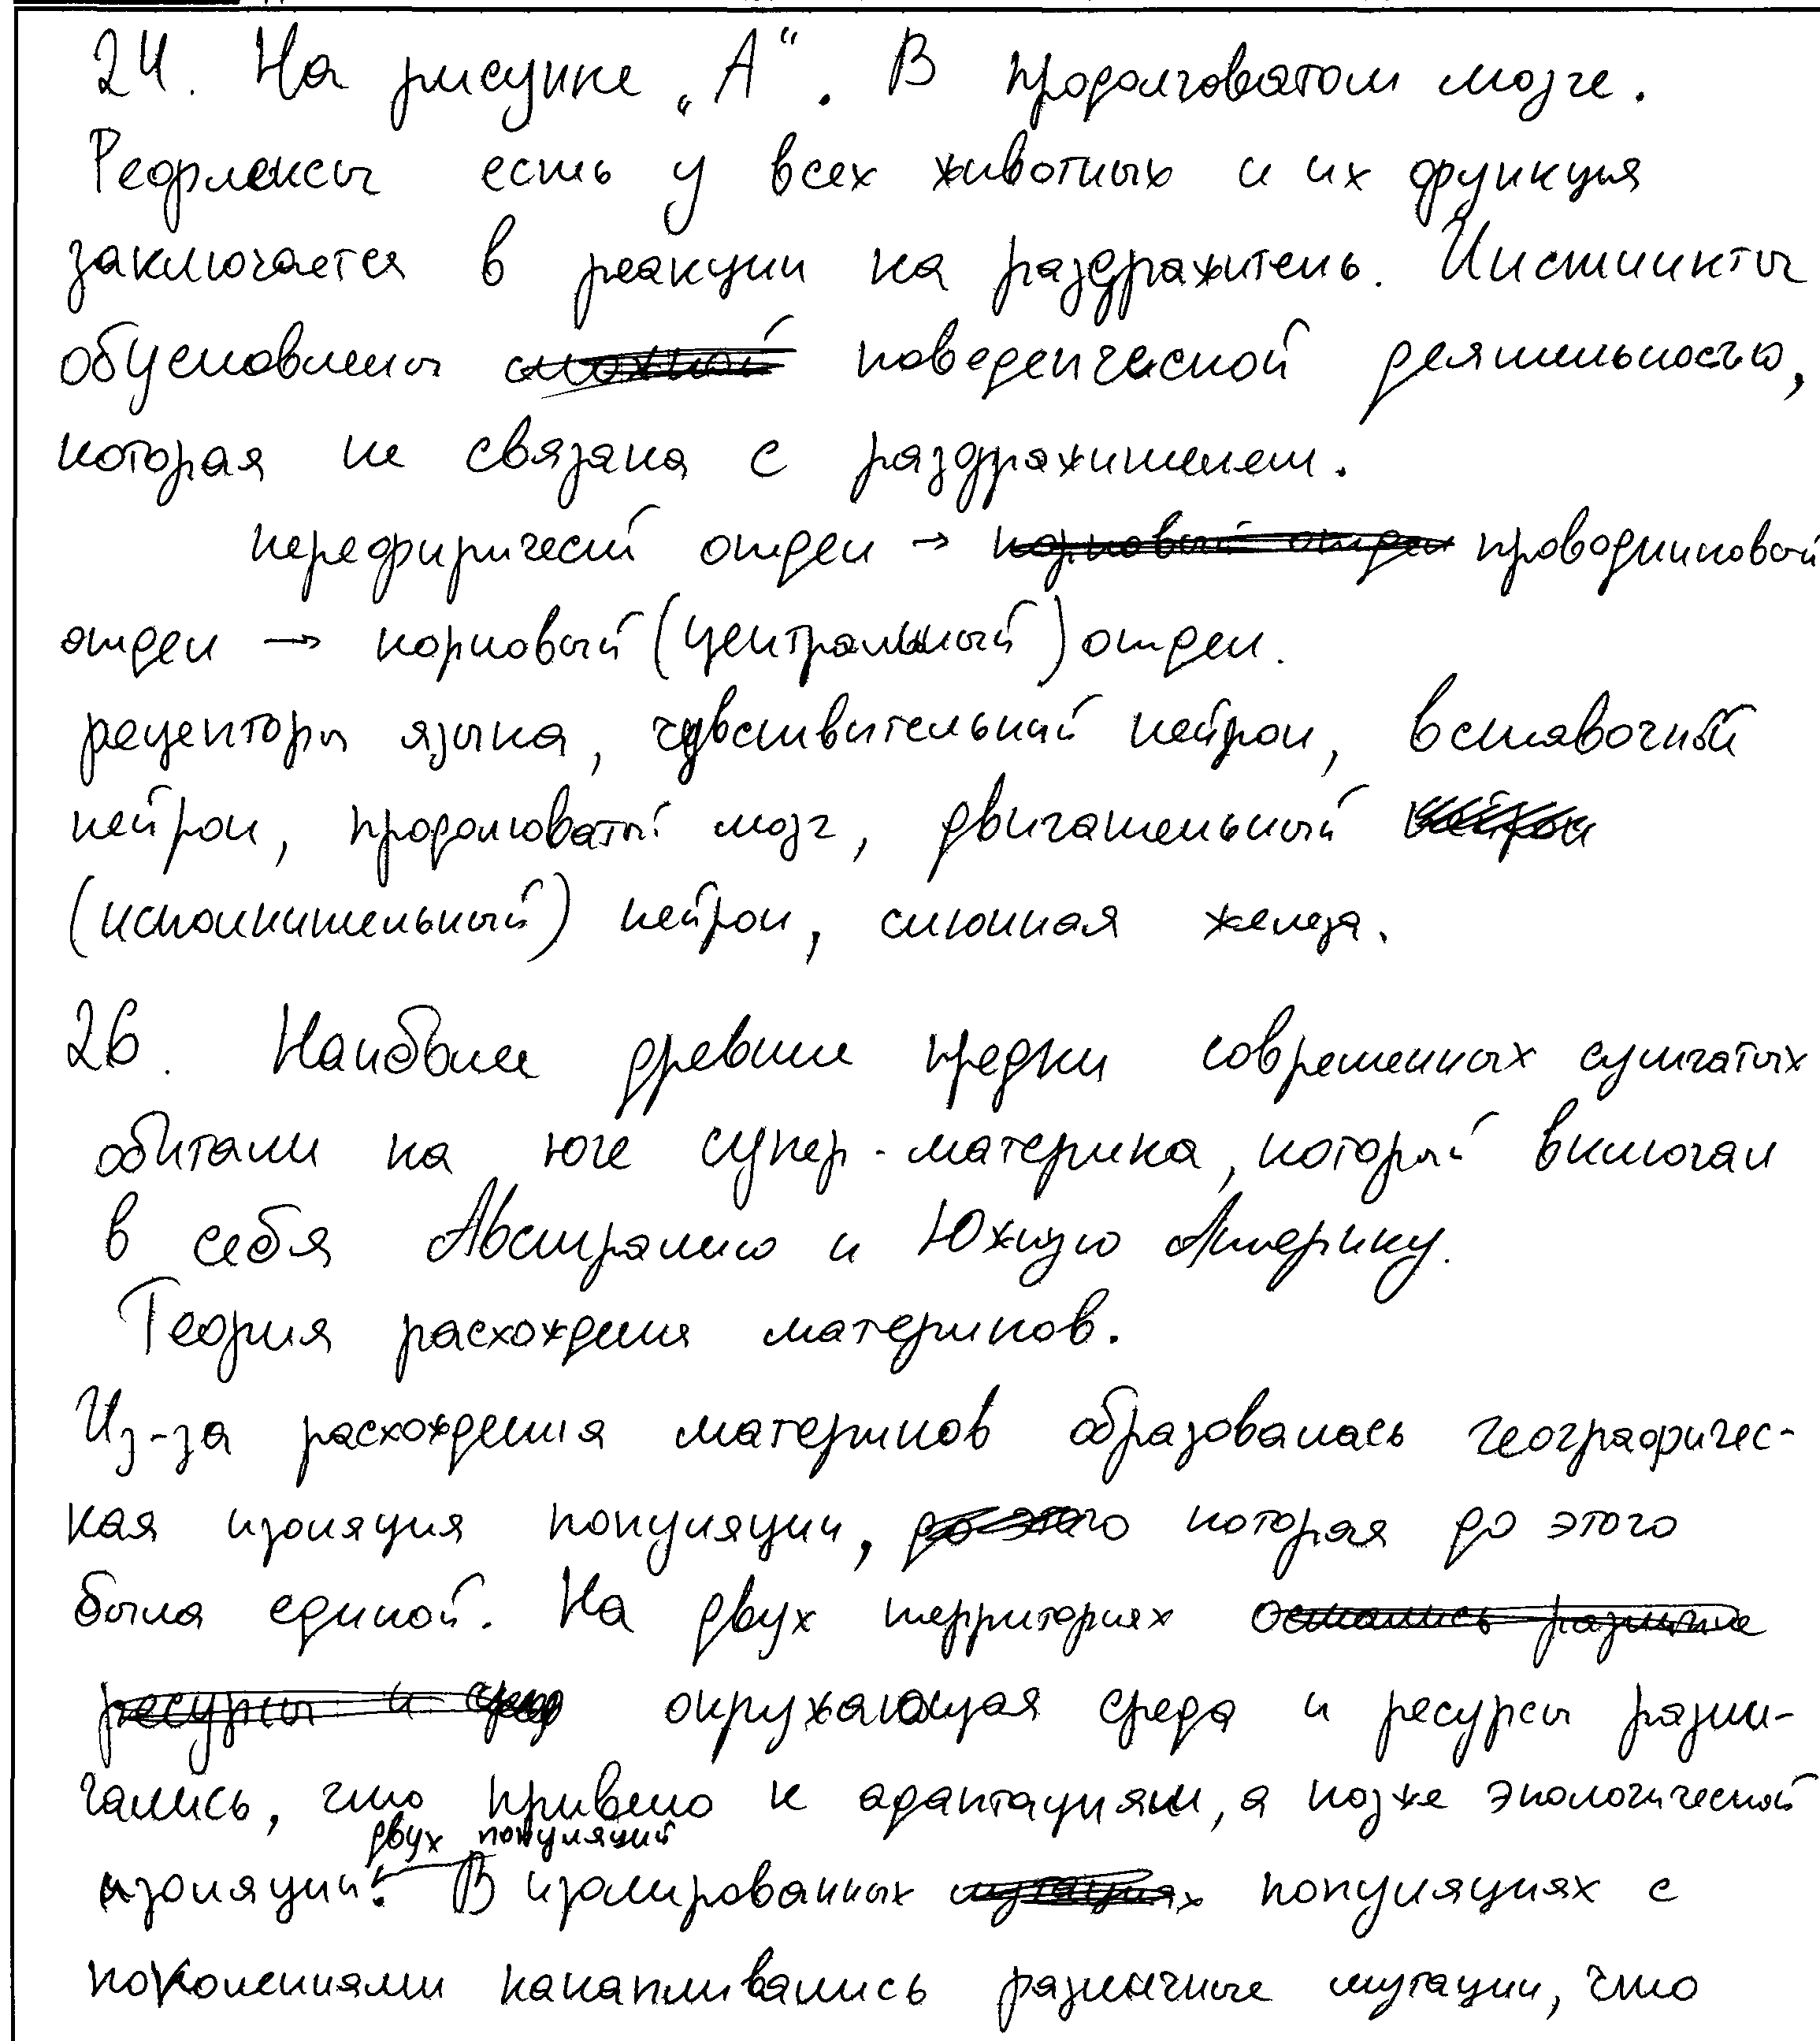 24. На рисунке „А“. В продолговатом мозге.
Рефлексы есть у всех животных и их функция
заключается в реакции на раздражитель. Инстинкты
обусловлены сложной поведенческой деятельностью,
которая не связана с раздражителем.
перефирический отдел → корковый отдел проводниковый
отдел → корковый (центральный) отдел.
рецепторы языка, чувствительный нейрон, вставочный
нейрон, продолговатый мозг, двигательный нейрон
(исполнительный) нейрон, слюнная железа.
26. Наиболее древние предки современных сумчатых
обитали на юге супер-материка, который включал
в себя Австралию и Южную Америку.
Теория расхождения материков.
Из-за расхождения материков образовалась географичес-
кая изоляция популяции, до этого которая до этого
была единой. На двух территориях остались различные
ресурсы и сред окружающая среда и ресурсы разли-
чались, что привело к адаптациям, а позже экологической
двух популяций
изоляции. В изолированных мутациях популяциях с
поколениями накапливались различные мутации, что